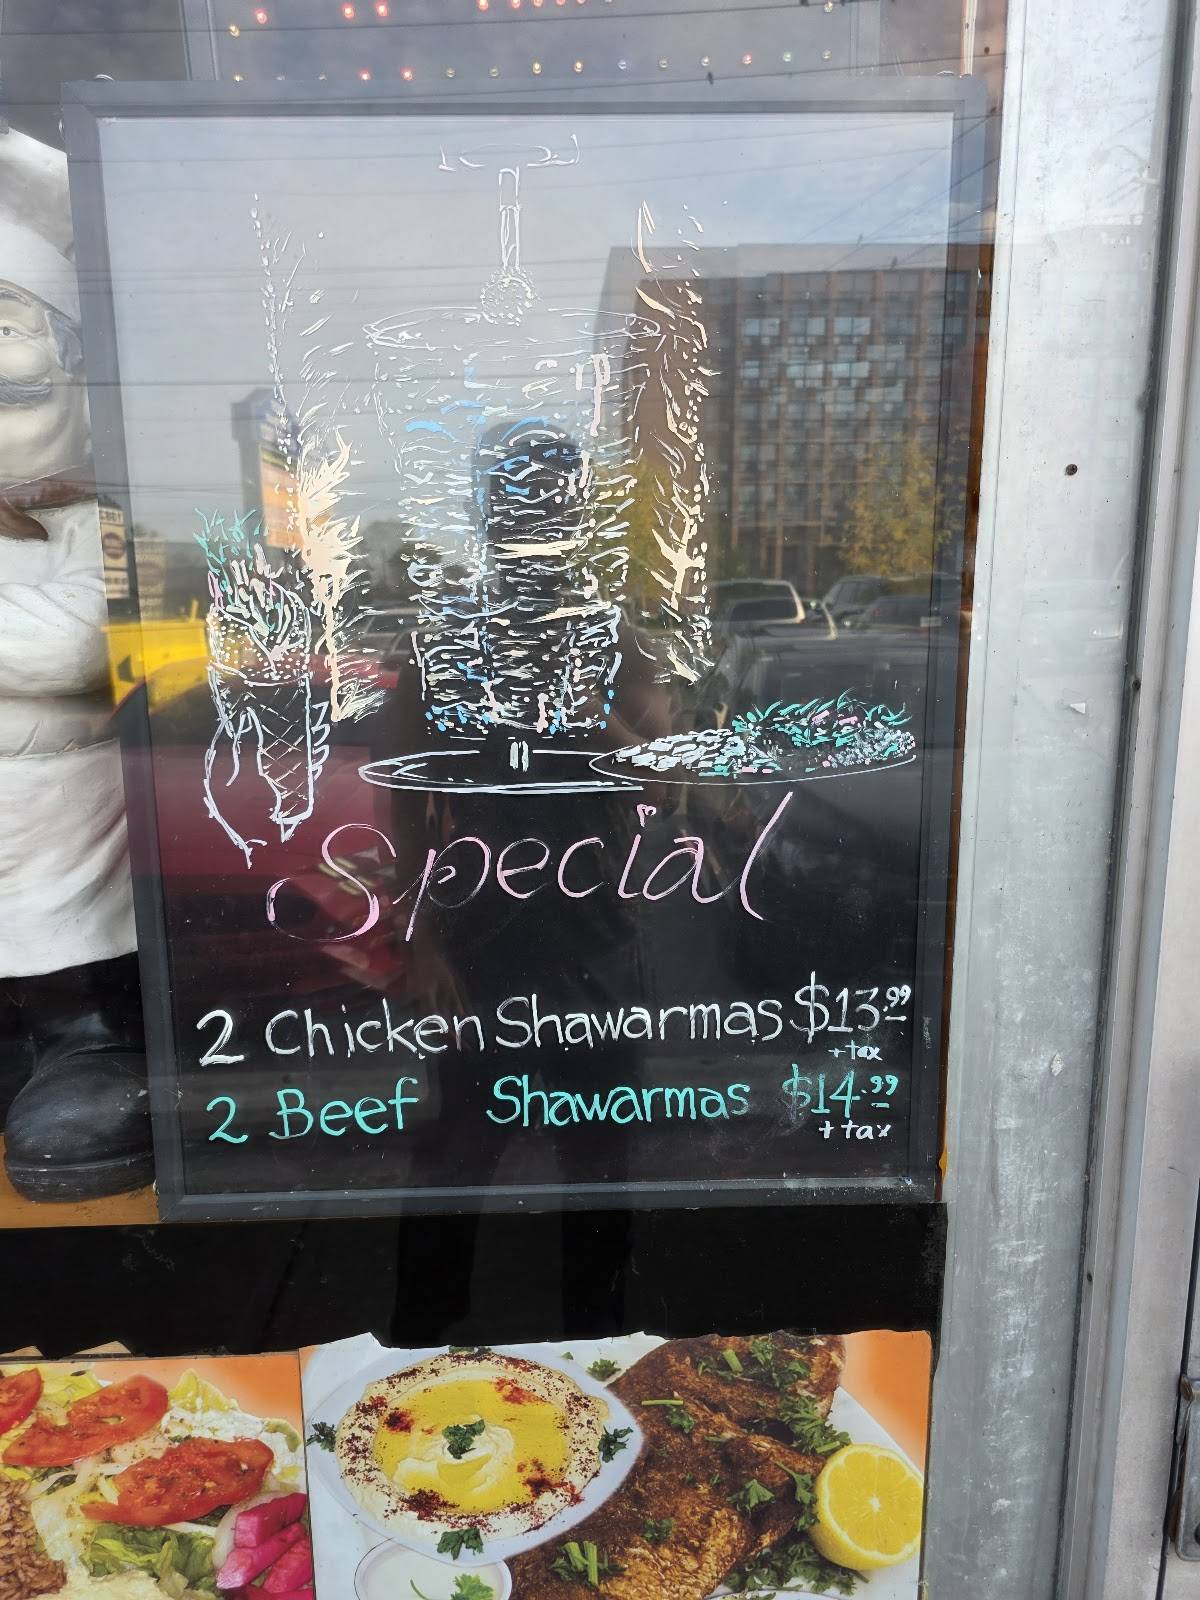 Special
2 Chicken Shawarmas $13.99
+ tax
2 Beef Shawarmas $14.99
+ tax